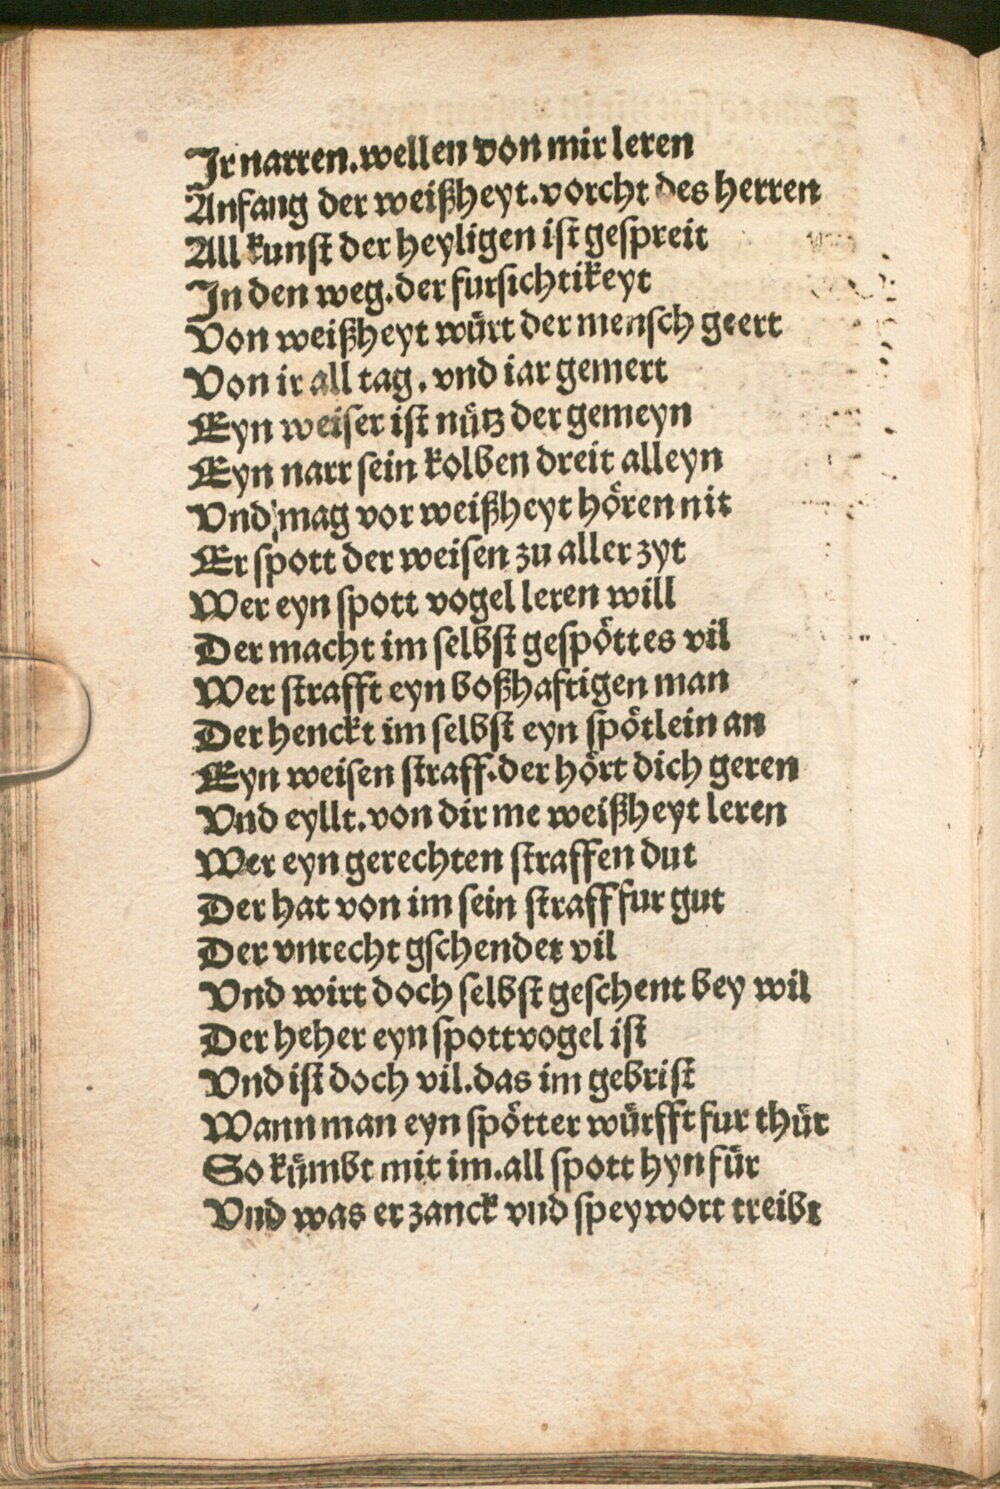 Ir narren. wellen von mir leren
Anfang der weißheyt. vorcht des herren
All kunst der heyligen ist gespreit
In den weg. der fursichtikeyt
Von weißheyt würt der mensch geert
Von ir all tag. vnd iar gemert
Eyn weiser ist nütz der gemeyn
Eyn narr sein kolben dreit alleyn
Vnd mag vor weißheyt hören nit
Er spott der weisen zu aller zyt
Wer eyn spott vogel leren will
Der macht im selbst gespöttes vil
Wer strafft eyn boßhafftigen man
Der henckt im selbst eyn spötlein an
Eyn weisen straff. der hört dich geren
Vnd eyllt. von dir me weißheyt leren
Wer eyn gerechten straffen dut
Der hat von im sein straff fur gut
Der vnrecht gschendet vil
Vnd wirt doch selbst geschent bey wil
Der heher eyn spottvogel ist
Vnd ist doch vil. das im gebrist
Wann man eyn spötter würfft fur thür
So kümbt mit im. all spott hyn für
Vnd was er zanck vnd speywort treibt